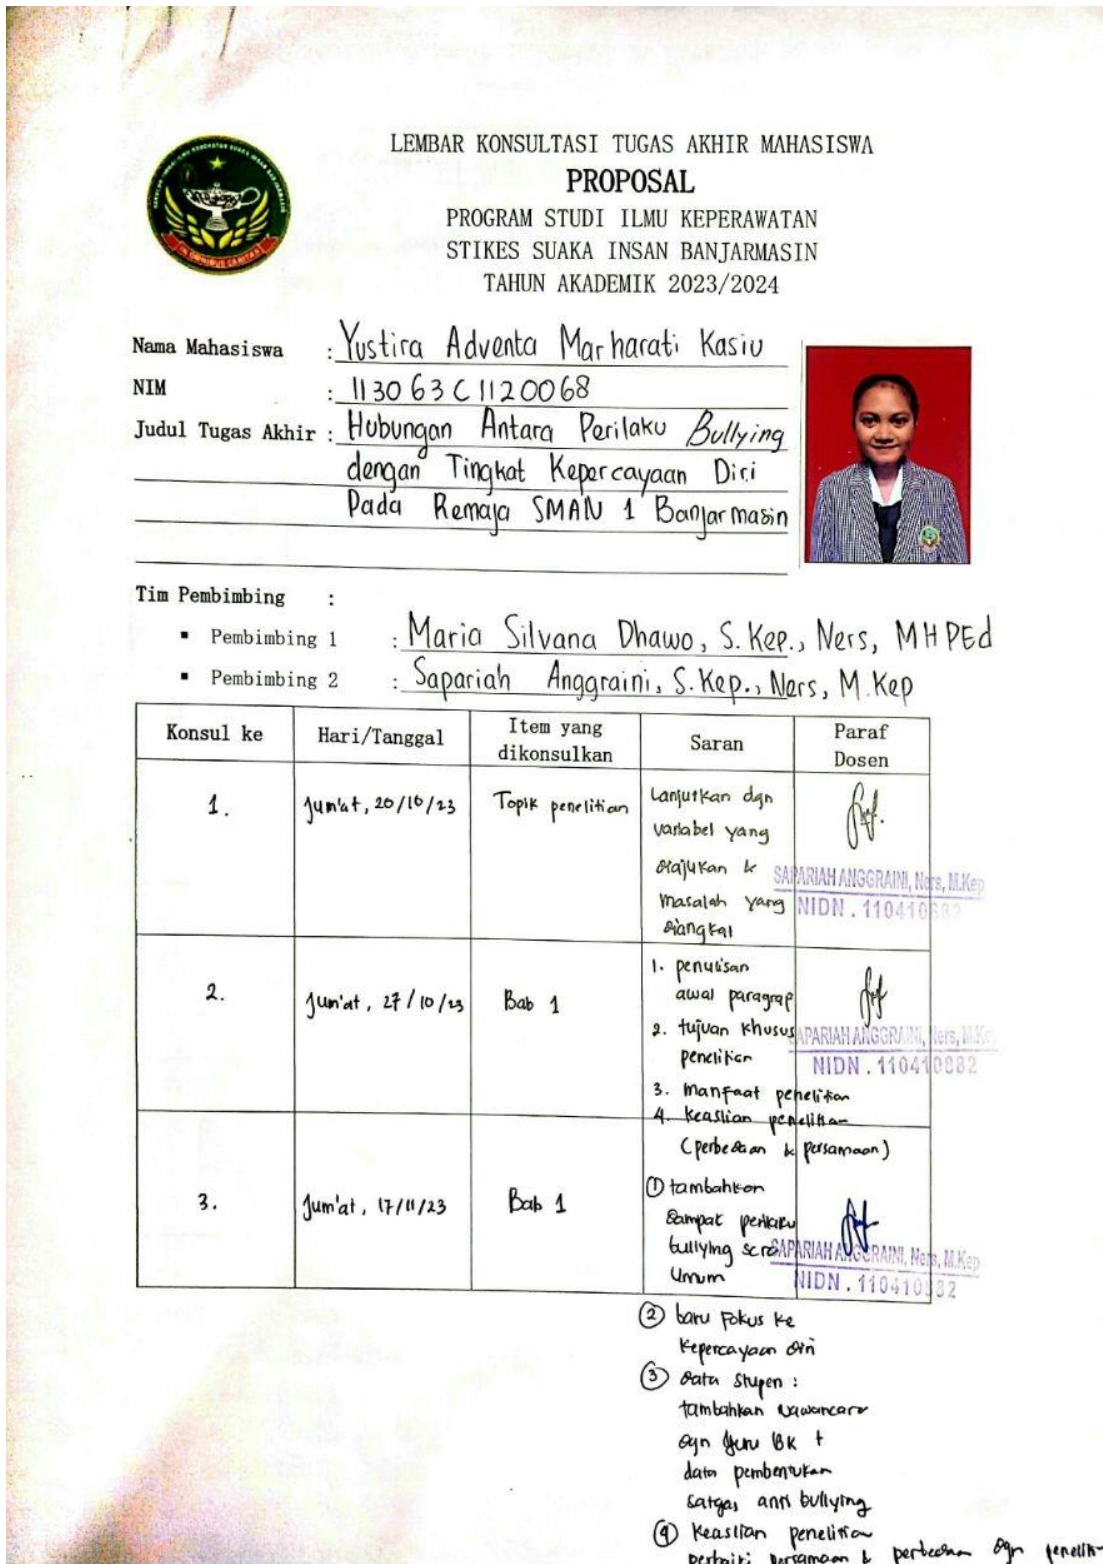 LEMBAR KONSULTASI TUGAS AKHIR MAHASISWA
PROPOSAL
PROGRAM STUDI ILMU KEPERAWATAN
STIKES SUAKA INSAN BANJARMASIN
TAHUN AKADEMIK 2023/2024
Nama Mahasiswa : Yustira Adventa Marharati Kasiu
NIM : 113063C1120068
Judul Tugas Akhir : Hubungan Antara Perilaku Bullying
dengan Tingkat Kepercayaan Diri
Pada Remaja SMAN 1 Banjarmasin
Tim Pembimbing :
▪ Pembimbing 1 : Maria Silvana Dhawo, S.Kep., Ners, MHPEd
▪ Pembimbing 2 : Sapariah Anggraini, S.Kep., Ners, M.Kep
Konsul ke Hari/Tanggal Item yang dikonsulkan Saran Paraf Dosen
1. Jum'at, 20/10/23 Topik penelitian Lanjutkan dgn
variabel yang
diajukan &
masalah yang
diangkat
SAPARIAH ANGGRAINI, Ners, M.Kep
NIDN. 110410882
2. Jum'at, 27/10/23 Bab 1 1. penulisan
awal paragrap
2. tujuan khusus
penelitian
3. Manfaat penelitian
4. keaslian penelitian
(perbedaan & persamaan)
SAPARIAH ANGGRAINI, Ners, M.Kep
NIDN. 110410882
3. Jum'at, 17/11/23 Bab 1 ① tambahkan
dampak perilaku
bullying scra
Umum
SAPARIAH ANGGRAINI, Ners, M.Kep
NIDN. 110410882
② baru fokus ke
kepercayaan diri
③ data stupen :
tambahkan wawancara
dgn guru BK +
data pembentukan
satgas anti bullying
④ keaslian penelitian
perbaiki persamaan & perbedaan dgn